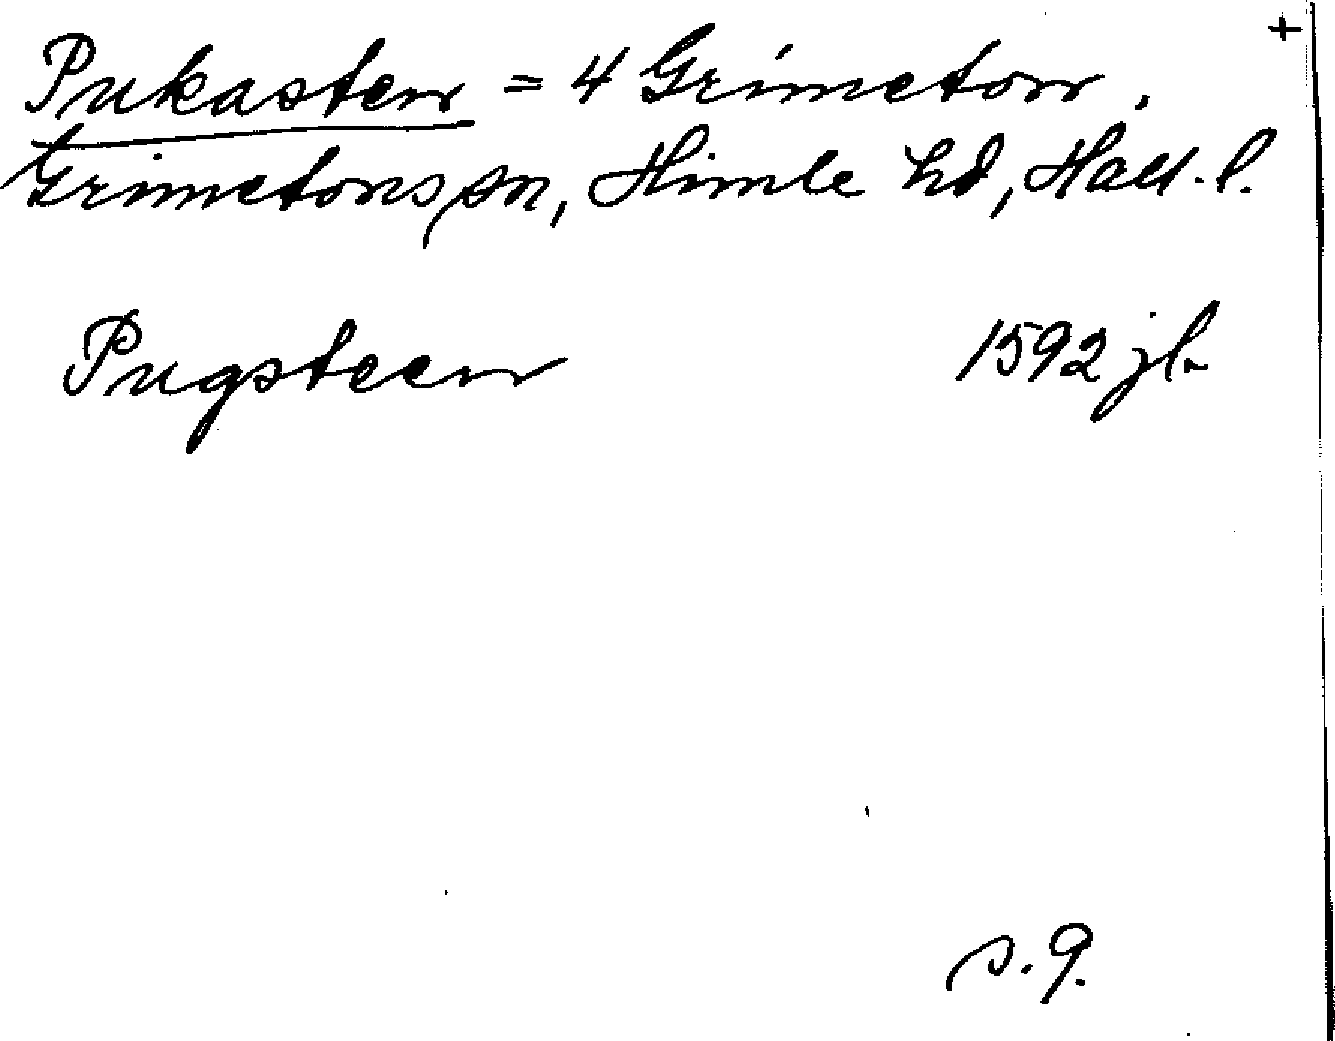 +
Pukasten = 4 Grimeton,
Grimetons sn, Himle hd, Hall. l.
Pugsteen 1592 jb
s. 9.